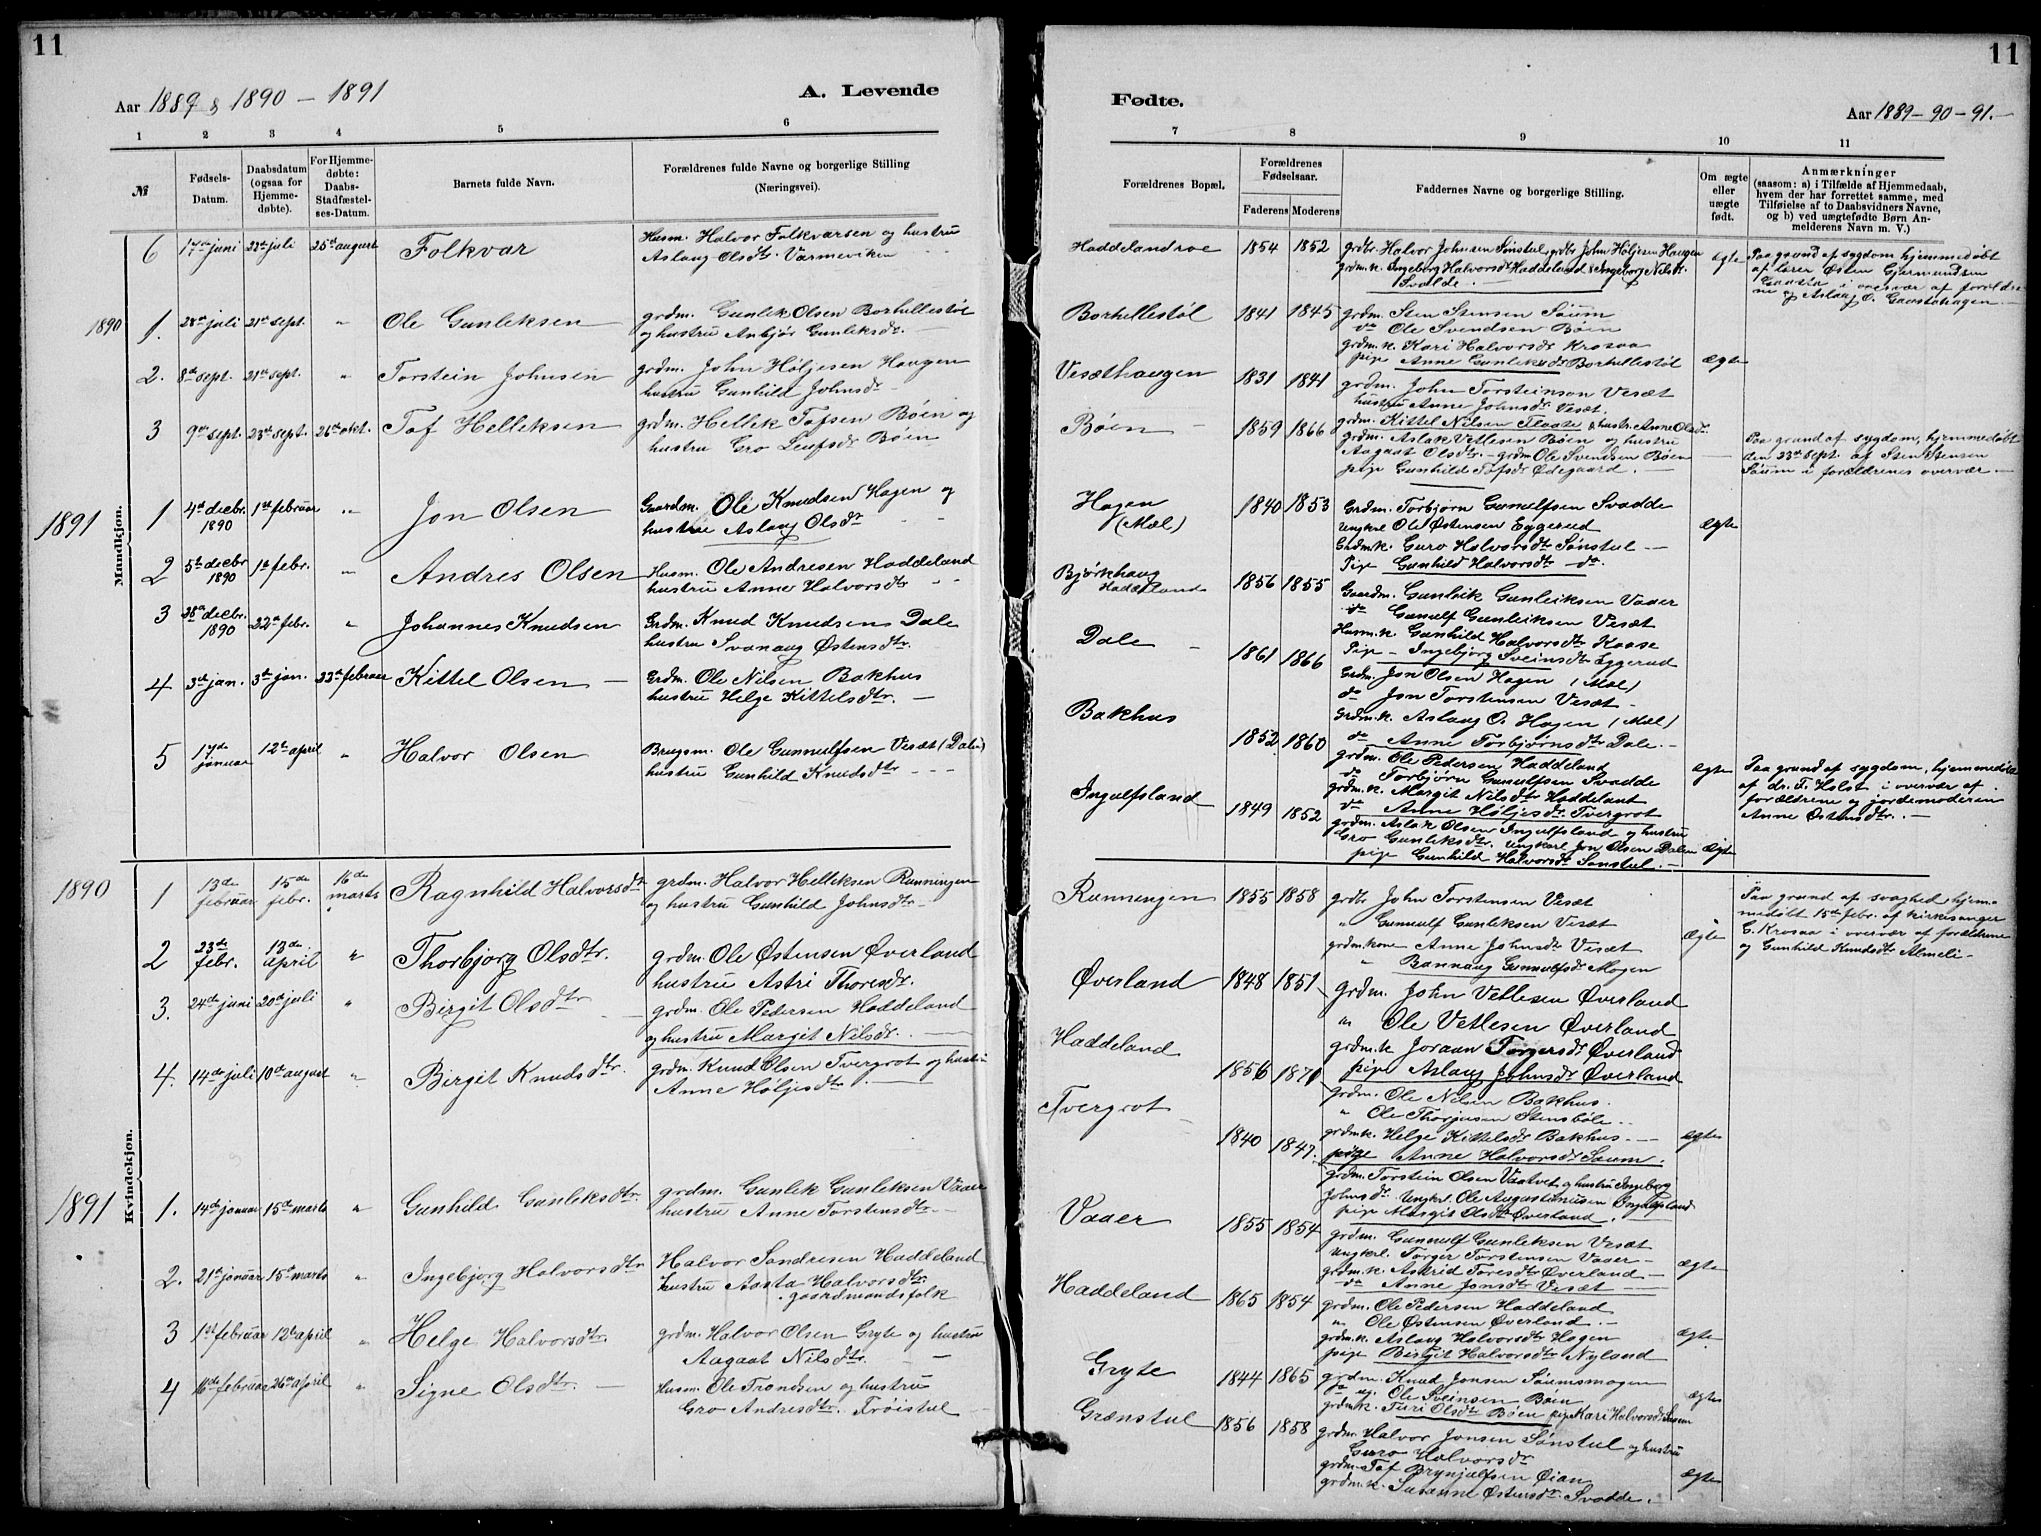 11
Aar 1889 & 1890 – 1891
A. Levende
1 2 3 4 5 6
№
Fødsels-Datum.
Daabsdatum (ogsaa for Hjemme-døbte).
For Hjemme-døbte: Daabs-Stadfæstel-ses-Datum.
Barnets fulde Navn.
Forældrenes fulde Navne og borgerlige Stilling (Næringsvei).
Mandkjøn.
6 17de juni 22de juli 25th august Folkvar Husm. Halvor Folkvarsen og hustru
Aslaug Olsdtr. Varmeviken
1890 1. 28de juli 21st sept. " Ole Gunleksen grdm. Gunlek Olsen Borhellestöl
og hustru Anbjør Gunleksdr. –
2. 8de sept. 21st sept. " Torstein Johnsen grdm. John Höljesen Haugen
hustru Gunhild Johnsdr
3 9de sept. 23de sept. 26de okt. Tof Helleksen grdm. Hellek Tofsen Bøen og
hustru Gro Leufsdr Bøen
1891 1 4de decbr. 1890 1st februar " Jon Olsen Gaardm. Ole Knudsen Hagen og
hustru Aslaug Olsdtr
2 5te decbr 1890 1st febr. " Andres Olsen Husm. Ole Andresen Haddeland
hustru Anne Halvorsdtr
3 28de decbr. 1890 22de febr. " Johannes Knudsen Grdm. Knud Knudsen Dale
hustru Svanaug Østensdtr.
4 3de jan. 3de jan. 23de februar Kittel Olsen – Grdm. Ole Nilsen Bakhus
hustru Helge Kittelsdtr. –
5 17de januar 12te april " Halvor Olsen Brugsm. Ole Gunnulfsen Vesæt (Dale)
hustru Gunhild Knudsdtr – – –
Kvindekjøn.
1890 1 13de februar 15de febr. 16de marts Ragnhild Halvorsdtr grdm. Halvor Helleksen Runningen
og hustru Gunhild Johnsdtr –
2 23de febr. 13de april " Thorbjørg Olsdtr. grdm. Ole Østensen Øverland
hustru Astri Thoresdr.
3. 24de juni 20de juli " Birgit Olsdtr grdm. Ole Pedersen Haddeland
og hustru Margit Nilsdr.
4. 14de juli 10de august " Birgit Knudsdtr. grdm. Knud Olsen Tvergrot og hustru
Anne Höljesdtr
1891 1. 14de januar 15de marts " Gunhild Gunleksdtr. grdm. Gunlek Gunleksen Vaaer
hustru Anne Torstensdtr. –
2. 21st januar 15de marts " Ingebjørg Halvorsdtr Halvor Sondresen Haddeland
hustru Aasta Halvorsdtr.
gaardmandsfolk
3 1st februar 12te april " Helge Halvorsdtr. grdm. Halvor Olsen Gryte og hustru
Aagaat Nilsdtr. – –
4 16de februar 26de april " Signe Olsdtr. – Husm. Ole Trondsen og hustru
Gro Andresdtr. Trøistul
11
Fødte.
Aar 1889 – 90 – 91. –
7 8 9 10 11
Forældrenes Bopæl.
Forældrenes Fødselsaar.
Faderens Moderens
Faddernes Navne og borgerlige Stilling.
Om ægte eller uægte født.
Anmærkninger
(saasom: a) i Tilfælde af Hjemmedaab,
hvem der har forrettet samme, med
Tilføielse af to Daabsvidners Navne,
og b) ved uægtefødte Børn An-
melderens Navn m. V.)
Haddelandroe 1854 1852 grdtr. Halvor Johnsen Sønstul, grdtr John Höljesen Haugen
grdm.k. Ingeborg Halvorsdr Haddeland & Ingeborg Nilsdr.
Svalde. –
ægte
Paa grund af sygdom hjemmedøbt
af lærer Østen Gjermundsen
Gausta i overvær af forældre-
ne og Aslaug O. Gaustahaugen
Borhellestöl 1841 1845 grdm. Sten Stensen Söum
do Ole Svendsen Bøen
grdm.k. Kari Halvorsdr Krosaa
pige Anne Gunleksdr Borhellestöl ægte
Vesæthaugen 1831 1841 grdm. John Torsteinson Vesæt
hustru Anne Johnsdr Vesæt.
grdm. Kittel Nilsen Flaate & hustr. Anne Olsdr.
Bøen 1859 1866 grdm. Aslak Vetlesen Bøen og hustru
Aagaat Olsdtr. – grdm Ole Svendsen Bøen
pige Gunhild Tofsdr Ødegaard. –
Paa grund af sygdom, hjemmedøbt
den 23de sept. af Sten Stensen
Söum i forældrenes overvær –
Hagen (Mæl) 1840 1853 Grdm. Torbjørn Gunnulfsen Svadde
Ungkrl Ole Østensen Eggerud
Grdm.k. Guro Halvorsdtr Sønstul –
Pige Gunhild Halvorsdtr do.
ægte
Bjørkhaug Haddeland 1856 1855 Gaardm. Gunleik Gunleiksen Vaaer
do Gunulf Gunleiksen Vesæt
Husm.k. Gunhild Halvorsdtr Kaase
Pige – Ingebjørg Sveinsdtr Eggerud
Dale 1861 1866 Grdm. Jon Olsen Hagen (Mæl)
do Jon Torstensen Vesæt –
Grdm.k. Aslaug O. Hagen (Mæl)
do Anne Torbjørnsdtr Dale. –
Bakhus 1852 1860 grdm. Ole Pedersen Haddeland
do Torbjørn Gunulfsen Svadde
grdm.k. Margit Nilsdtr Haddeland
do Anne Höljesdr. Tvergrot
ægte
Paa grund af sygdom, hjemmedøbt
af dr. F. Holst i overvær af
forældrene og jordemoderen
Anne Østensdtr. –
Ingulfsland 1849 1852 grdm. Aslak Olsen Ingulfsland og hustru
Gro Gunleksdtr. Ungkarl Jon Olsen Dalen
pige Gunhild Halvorsdtr Sønstul. –
ægte
Runningen 1855 1858 grdtr John Torstensen Vesæt
" Gunnulf Gunleksen Vesæt
grdm.kone Anne Johnsdtr Vesæt
" Bannaug Gunnulfsdr Mogen
ægte
Paa grund af svaghed, hjem-
medøbt 15de febr. af kirkesanger
G. Krosaa i overvær af forældrene
og Gunhild Knudsdtr Almeli –
Øverland 1848 1851 grdm. John Vetlesen Øverland
" Ole Vetlesen Øverland
grdm.k Joraan Torgersdr Øverland
pige Aslaug Johnsdr Øverland
Haddeland 1856 1870 grdm. Ole Nilsen Bakhus.
" Ole Thorjusen Stensböle.
grdm.k. Helge Kittelsdr Bakhus. –
pige Anne Halvorsdr Saum.
ægte
Tvergrot 1840 1847. grdm. Torstein Olsen Vaatvet og hustru Ingeborg
Johnsdr. Ungkrl. Ole Augustinusen Ingulfsland
pige Margit Olsdtr Øverland.
Vaaer 1855 1854 grdm. Gunnulf Gunleksen Vesæt
Ungkrl. Torger Torstensen Vaaer –
grdm.k. Astrid Toresdtr Øverland –
do Anne Jonsdtr Vesæt –
ægte
Haddeland 1865 1854 grdm. Ole Pedersen Haddeland
" Ole Østensen Øverland. –
grdm.k. Aslaug Halvorsdtr Hagen
pige Birgit Halvorsdtr Nyland
ægte
Gryte 1844 1865 grdm. Knud Jonsen Söumsmogen
do Ole Sveinsen Bøen
grdm.k. Turi Olsdtr Bøen pige Kari Halvorsdr Søum
ægte
Grønstul 1856 1858 grdm. Halvor Jonsen Sønstul og hustru
Guro Halvorsdr
grdm. Tof Brynjulfsen Øian
grdm.k. Susanne Østensdtr. Svadde.
ægte